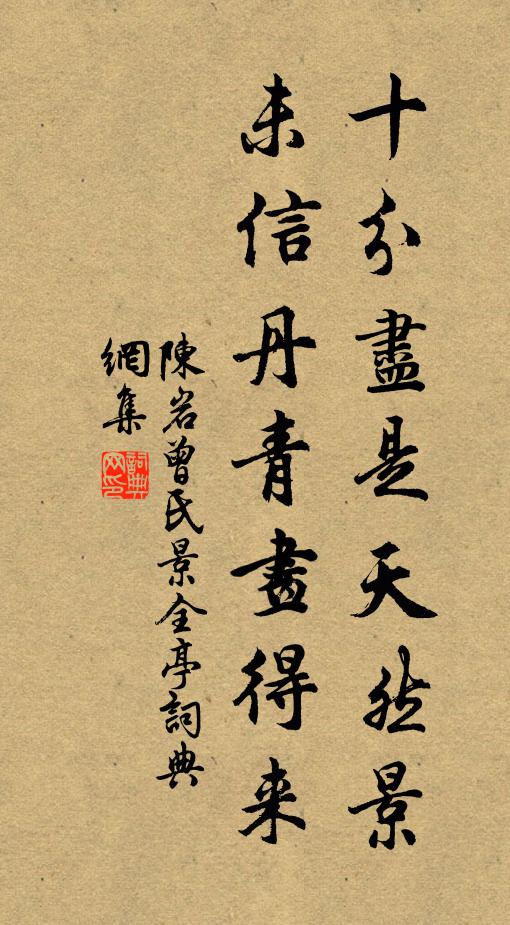 十分盡是天然景
未信丹青畫得来
陳岩曾氏景全亭詞典
網集
詞典网印